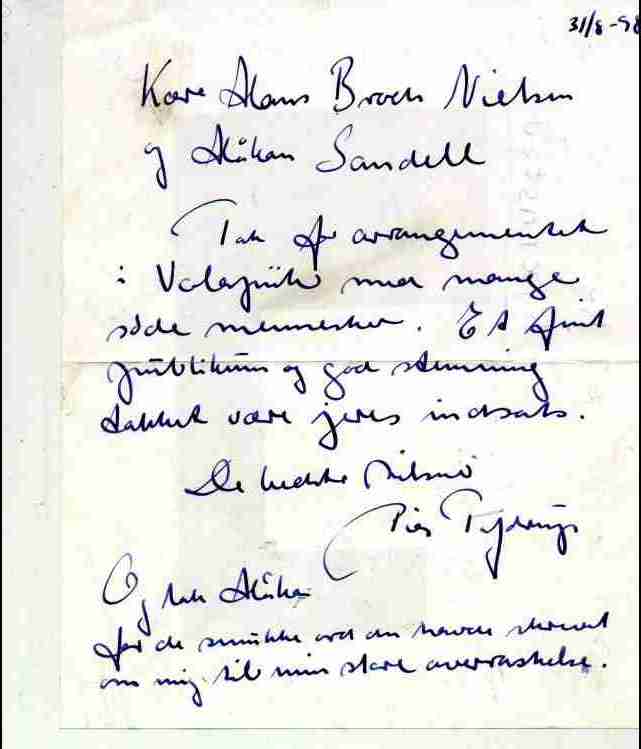 31/8-98
Kære Hans Broch Nielsen
og Håkan Sandell
Tak for arrangementet
i Volapük med mange
søde mennesker. Et fint
publikum og god stemning
takket være jeres indsats.
De bedste hilsner
Pia Tafdrup
Og tak Håkan
for de smukke ord du havde skrevet
om mig til min store overraskelse.